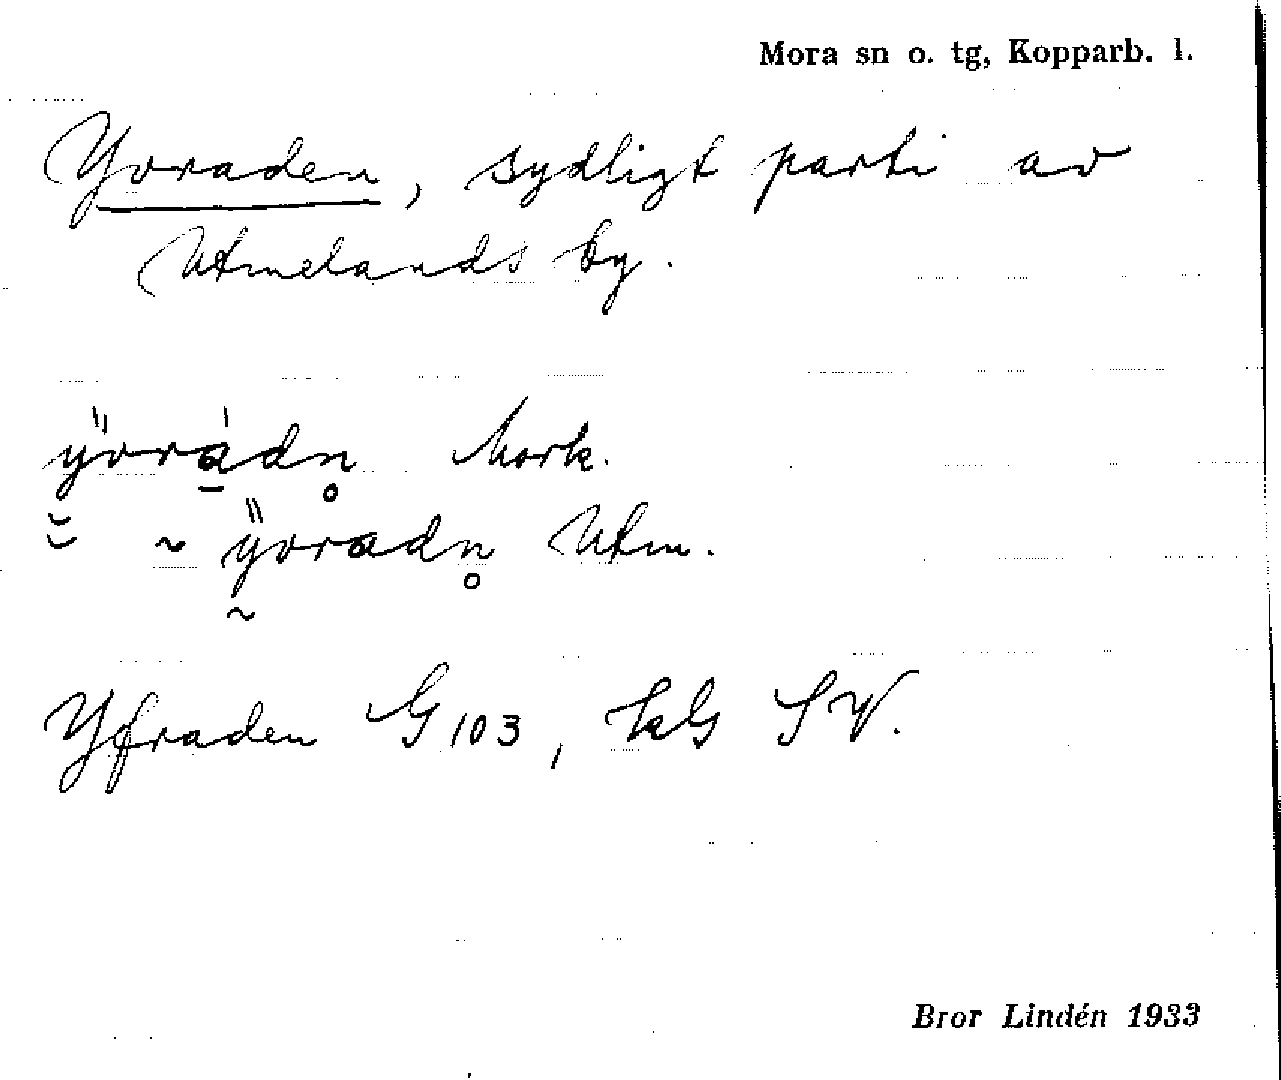 Mora sn o. tg, Kopparb. l.
Yvraden, sydligt parti av
Utmelands by.
ÿvràdn̥ Mork.
~ ÿvradn̥ Utm.
Yfraden G 103, LkG SV.
Bror Lindén 1933